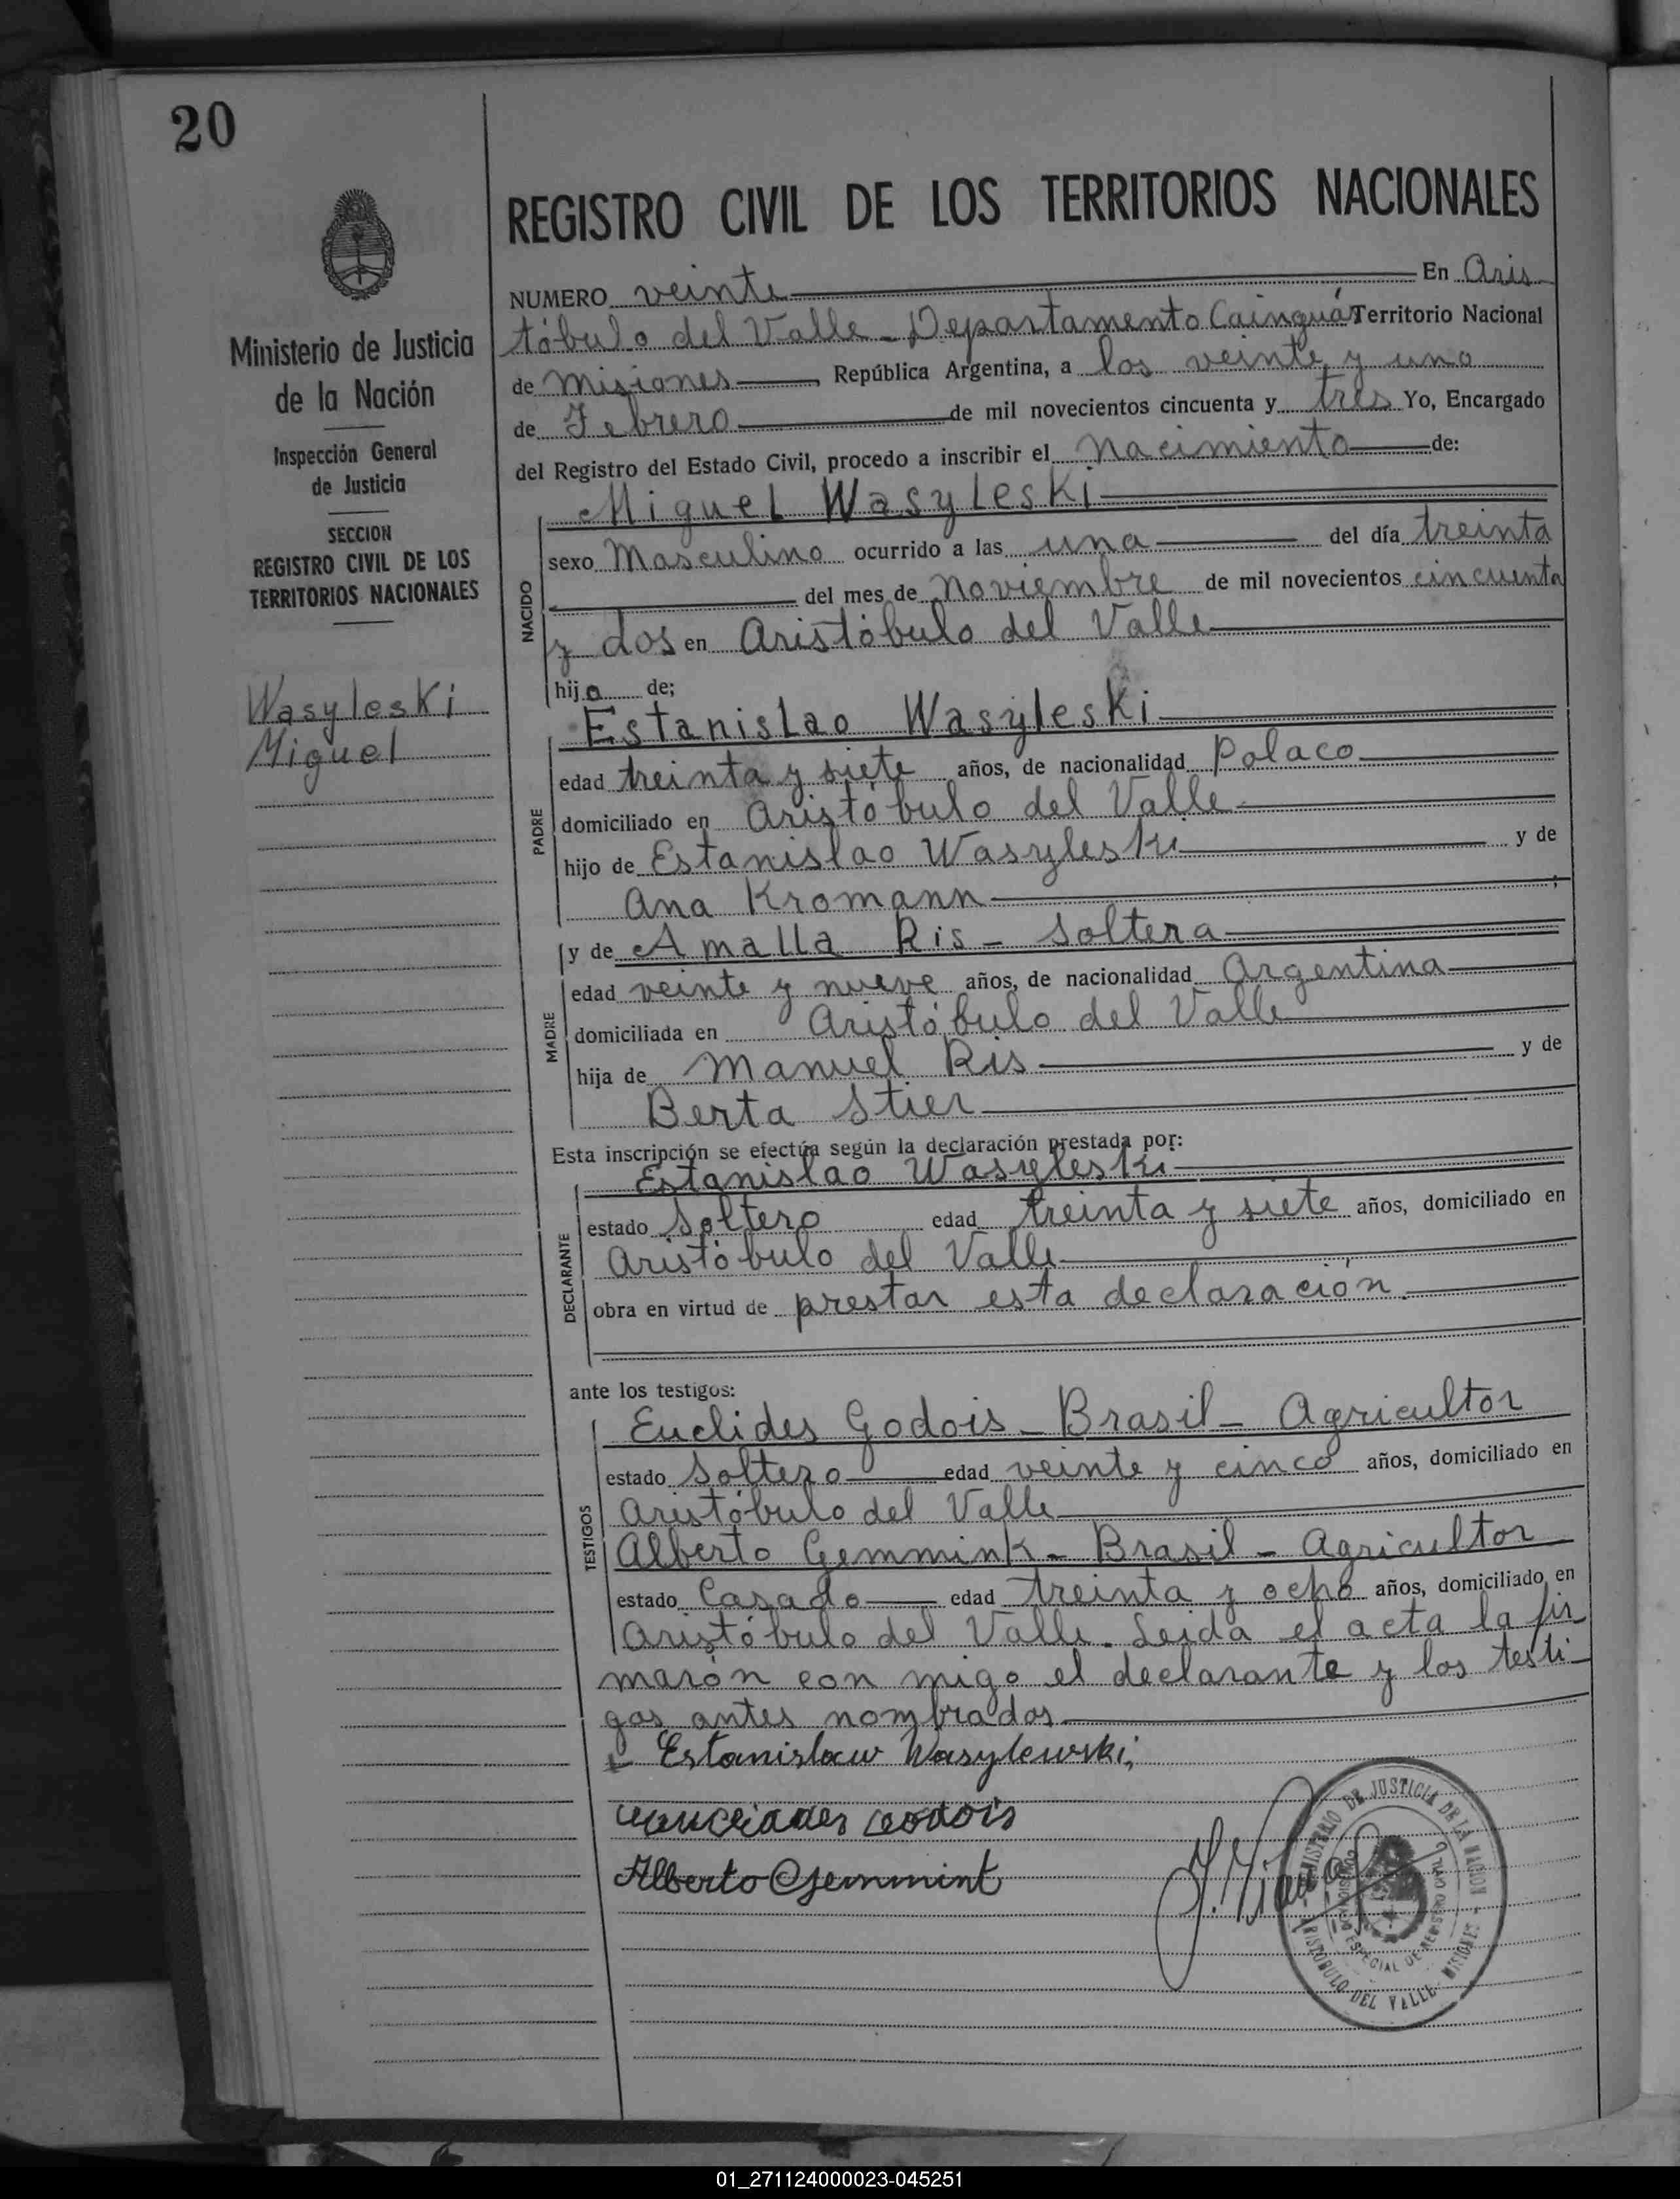 20
REGISTRO CIVIL DE LOS TERRITORIOS NACIONALES
Ministerio de Justicia
de la Nación
Inspección General
de Justicia
SECCION
REGISTRO CIVIL DE LOS
TERRITORIOS NACIONALES
Wasyleski
Miguel
NUMERO veinte En Aris
tóbulo del Valle - Departamento Cainguás Territorio Nacional
de Misiones, República Argentina, a los veinte y uno
de Febrero de mil novecientos cincuenta y tres Yo, Encargado
del Registro del Estado Civil, procedo a inscribir el Nacimiento de:
NACIDO
Miguel Wasyleski
sexo Masculino ocurrido a las una del día treinta
del mes de Noviembre de mil novecientos cincuenta
y dos en Aristóbulo del Valle
hijo de;
PADRE
Estanislao Wasyleski
edad treinta y siete años, de nacionalidad Polaco
domiciliado en Aristóbulo del Valle
hijo de Estanislao Wasyleski y de
Ana Kromann
MADRE
y de Amalla Ris - Soltera
edad veinte y nueve años, de nacionalidad Argentina
domiciliada en Aristóbulo del Valle
hija de Manuel Ris y de
Berta Stier
Esta inscripción se efectúa según la declaración prestada por:
DECLARANTE
Estanislao Wasyleski
estado Soltero edad treinta y siete años, domiciliado en
Aristóbulo del Valle
obra en virtud de prestar esta declaración.
ante los testigos:
TESTIGOS
Euclides Godois - Brasil - Agricultor
estado Soltero edad veinte y cinco años, domiciliado en
Aristóbulo del Valle
Alberto Gemmink - Brasil - Agricultor
estado Casado edad treinta y ocho años, domiciliado en
Aristóbulo del Valle. Leida el acta la fir
marón con migo el declarante y los testi-
gos antes nombrados
Estanislaw Wasylewski
Godois
Alberto Gemmint
MINISTERIO DE JUSTICIA DE LA NACION
ARISTOBULO DEL VALLE - MISIONES
ESPECIAL DE REGISTRO CIVIL
01_271124000023-045251